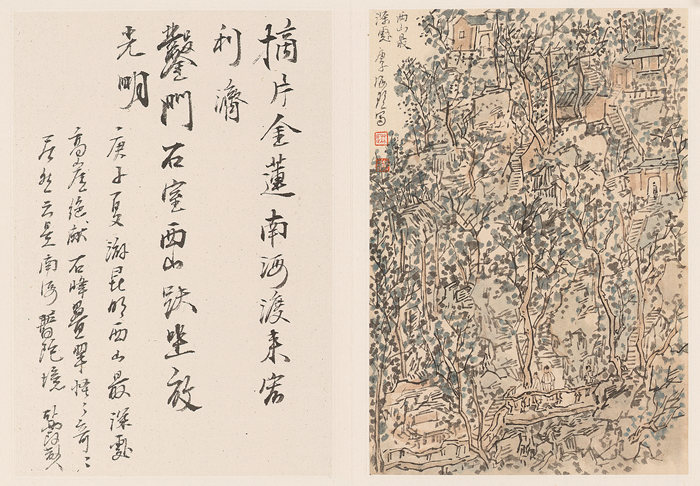 西山最
深處
摘片金蓮南海渡来
利濟
鑿門石室西山趺坐放
光明
庚子夏游昆明西山最深處
高崖絶巘石峰疊翠怪〻奇〻
居然云是南海普陀境